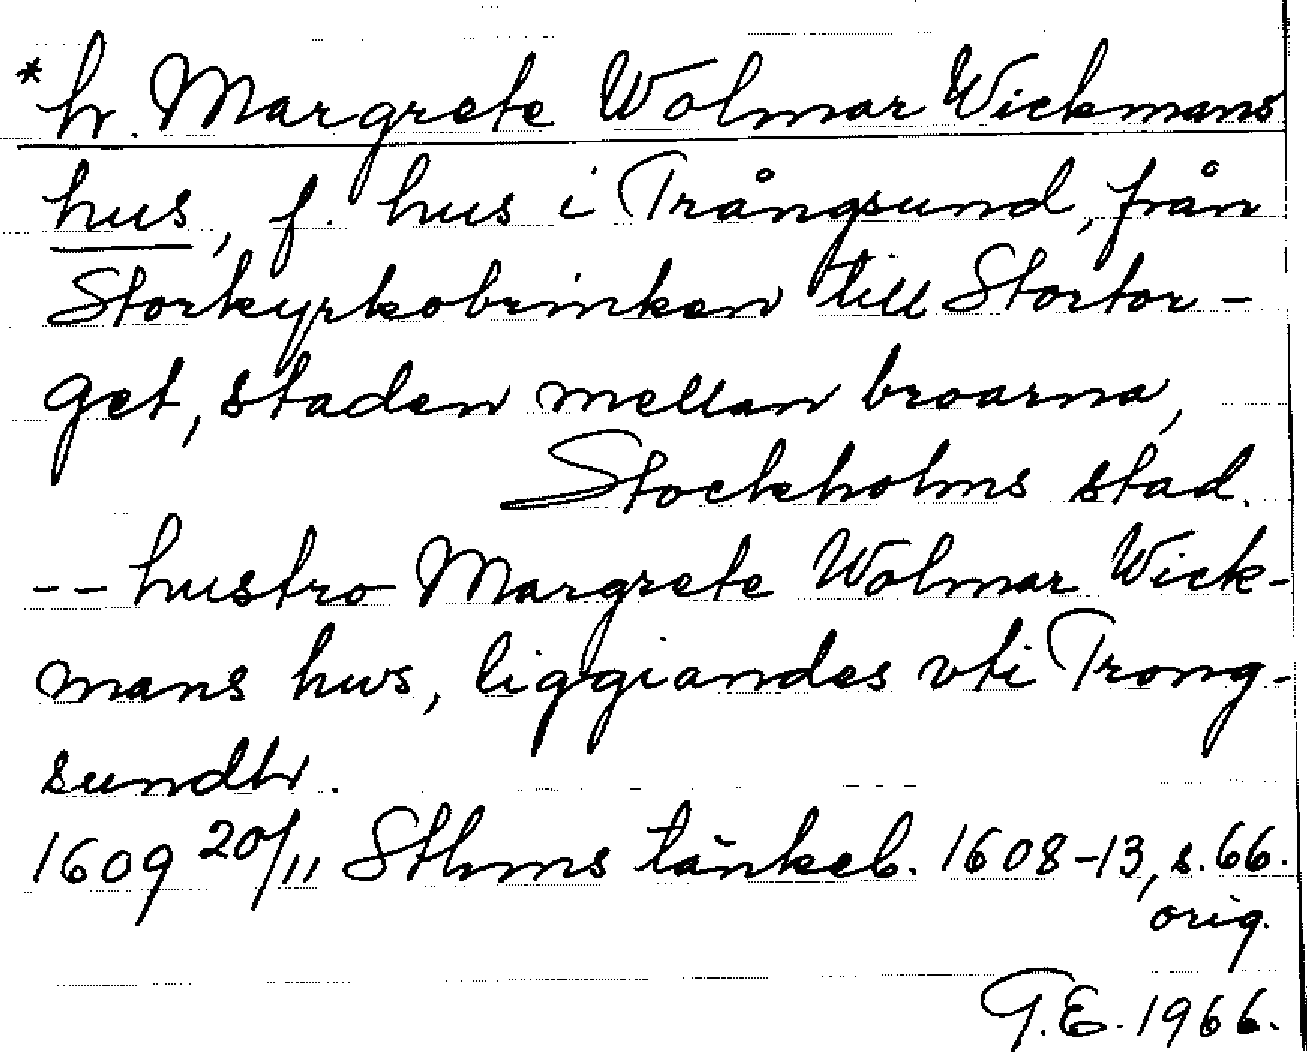 * h. Margrete Wolmar Wickmans
hus, f. hus i Trångsund, från
Storkyrkobrinken till Stortor-
get, staden mellan broarna,
Stockholms stad.
-- hustro Margrete Wolmar Wick-
mans hws, liggiandes vti Trong-
sundh.
1609 20/11 Sthms tänkeb. 1608-13, s. 66.
orig.
G.E. 1966.